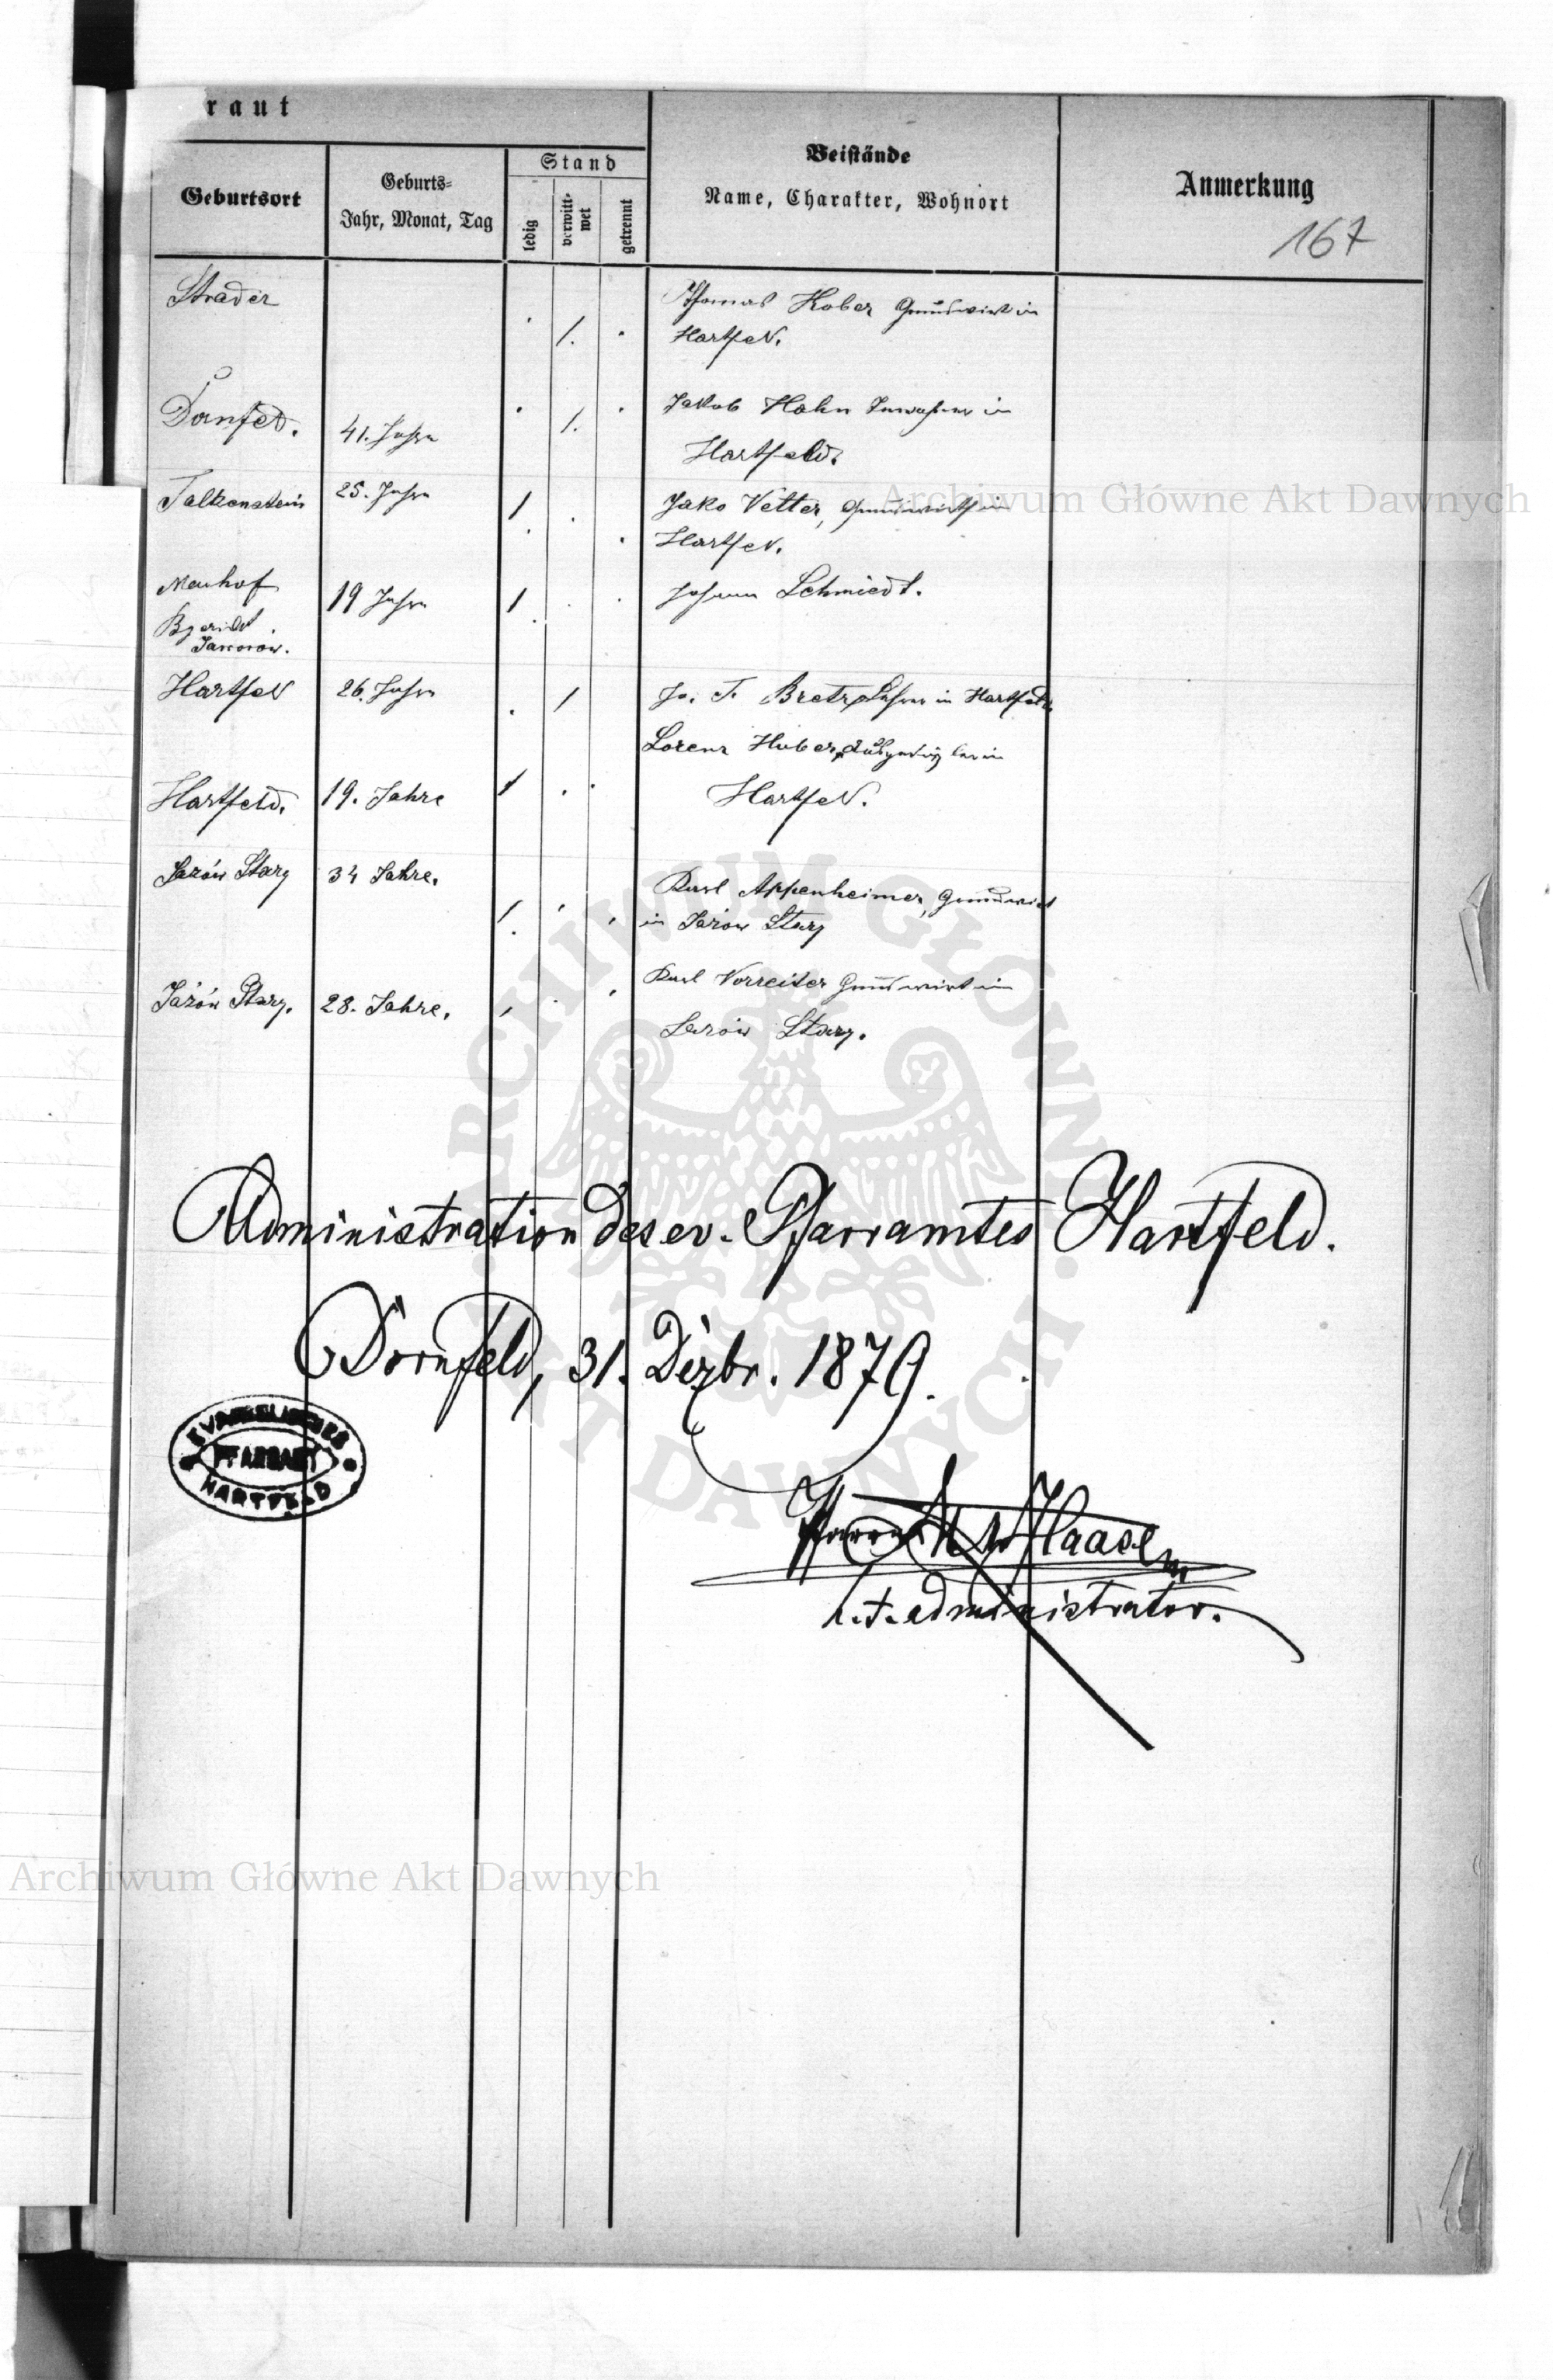 raut
Geburtsort
Geburts-
Jahr, Monat, Tag
Stand
ledig
verwitt-
wet
getrennt
Beistände
Name, Charakter, Wohnort
Anmerkung
167
Strader
/.
Thomas Kober Grundwirt in
Hartfeld.
Dornfeld.
41. Jahre
/.
Jakob Hahn Inwohner in
Hartfeld.
Falkenstein
25. Jahre
/
Jako Vetter, Grundwirth in
Hartfeld.
Neuhof
Bzericht
Jaworow.
19 Jahre
/
Johann Schmiedt.
Hartfeld
26. Jahre
/
Jo. F. Bretz, Lehrer in Hartfeld
Lorenz Huber, in
Hartfeld.
Hartfeld.
19. Jahre
/
Jazów Stary
34 Jahre.
/.
Karl Appenheimer, Grundwirt
in Jazow Stary
Jazów Stary.
28. Jahre.
/
Karl Vorreiter Grundwirt in
Jazów Stary.
Administration des ev. Pfarramtes Hartfeld.
Dornfeld, 31. Dezbr. 1879.
EVANGELISCHES
PFARRAMT
HARTFELD
Pfarrer Haase
h.t. administrator.
Archiwum Główne Akt Dawnych
ARCHIWUM GŁÓWNE
AKT DAWNYCH
Archiwum Główne Akt Dawnych